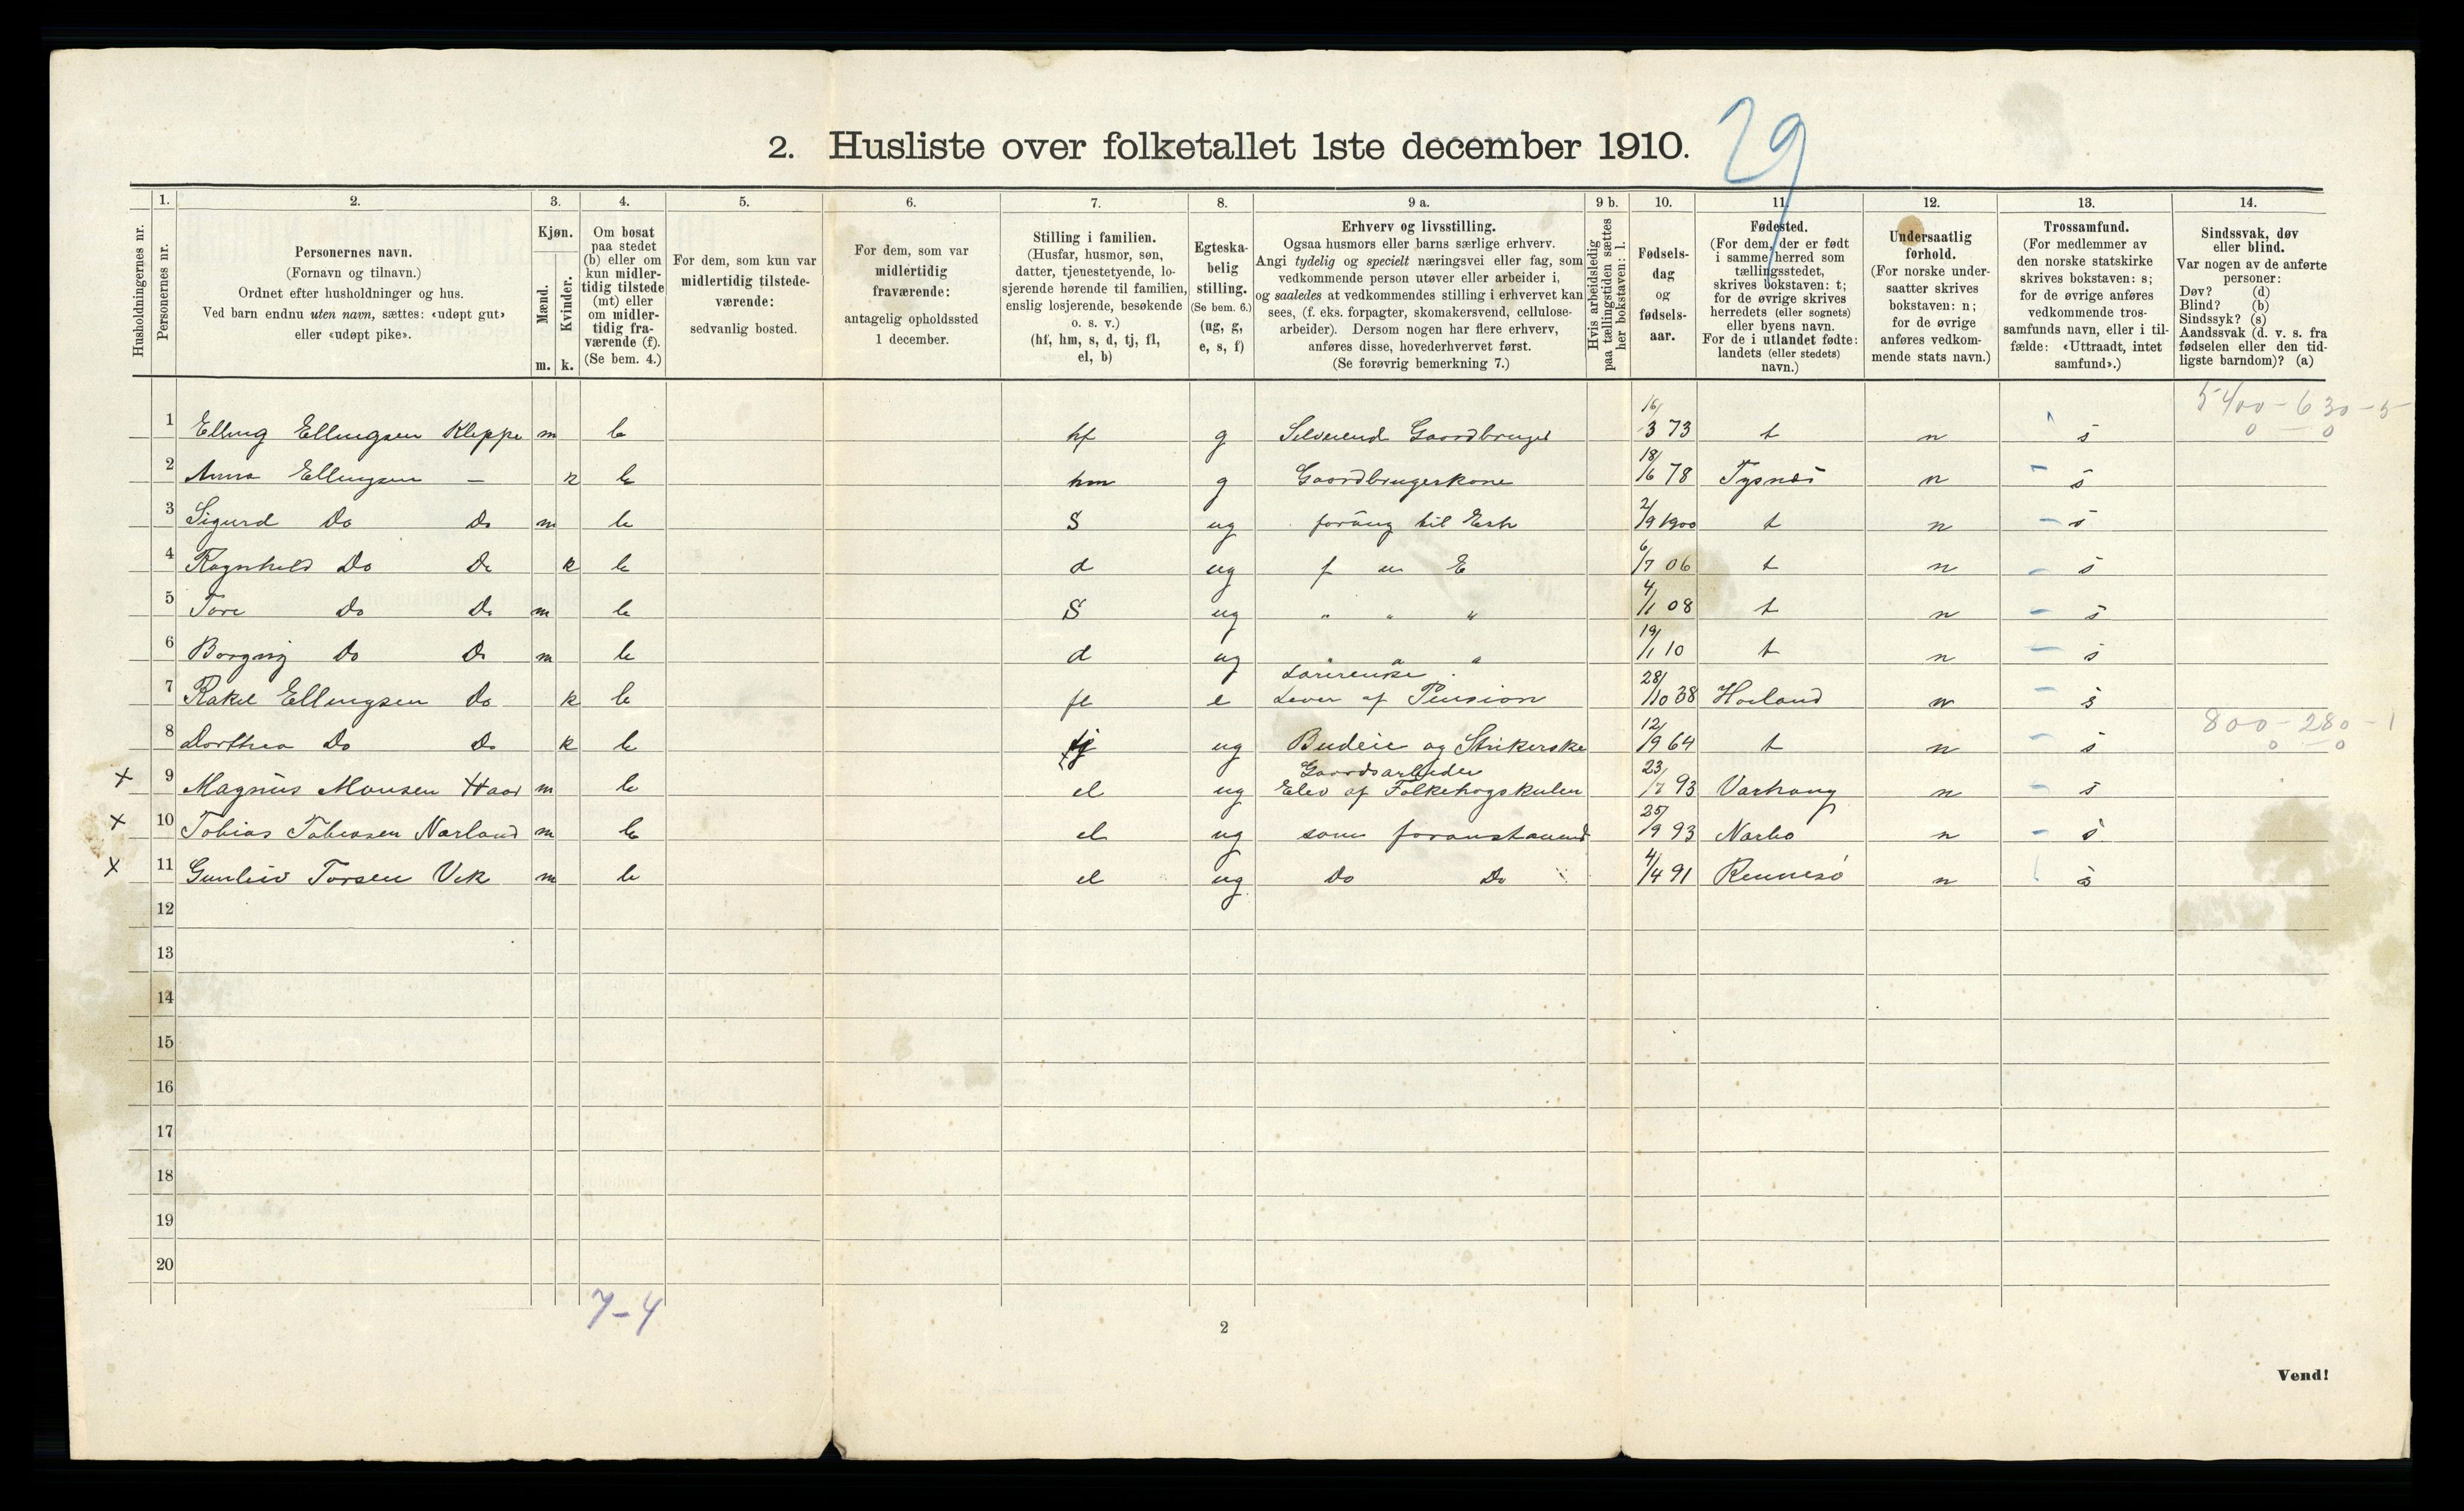 2. Husliste over folketallet 1ste december 1910. 29
Husholdningernes nr.
1. Personernes nr.
2. Personernes navn.
(Fornavn og tilnavn.)
Ordnet efter husholdninger og hus.
Ved barn endnu uten navn, sættes: «udøpt gut»
eller «udøpt pike».
3. Kjøn.
Mænd. m.
Kvinder. k.
4. Om bosat
paa stedet
(b) eller om
kun midler-
tidig tilstede
(mt) eller
om midler-
tidig fra-
værende (f).
(Se bem. 4.)
5. For dem, som kun var
midlertidig tilstede-
værende:
sedvanlig bosted.
6. For dem, som var
midlertidig
fraværende:
antagelig opholdssted
1 december.
7. Stilling i familien.
(Husfar, husmor, søn,
datter, tjenestetyende, lo-
sjerende hørende til familien,
enslig losjerende, besøkende
o. s. v.)
(hf, hm, s, d, tj, fl,
el, b)
8. Egteska-
belig
stilling.
(Se bem. 6.)
(ug, g,
e, s, f)
9 a. Erhverv og livsstilling.
Ogsaa husmors eller barns særlige erhverv.
Angi tydelig og specielt næringsvei eller fag, som
vedkommende person utøver eller arbeider i,
og saaledes at vedkommendes stilling i erhvervet kan
sees, (f. eks. forpagter, skomakersvend, cellulose-
arbeider). Dersom nogen har flere erhverv,
anføres disse, hovederhvervet først.
(Se forøvrig bemerkning 7.)
9 b. Hvis arbeidsledig
paa tællingstiden sættes
her bokstaven: l.
10. Fødsels-
dag
og
fødsels-
aar.
11. Fødested.
(For dem, der er født
i samme herred som
tællingsstedet,
skrives bokstaven: t;
for de øvrige skrives
herredets (eller sognets)
eller byens navn.
For de i utlandet fødte:
landets (eller stedets)
navn.)
12. Undersaatlig
forhold.
(For norske under-
saatter skrives
bokstaven: n;
for de øvrige
anføres vedkom-
mende stats navn.)
13. Trossamfund.
(For medlemmer av
den norske statskirke
skrives bokstaven: s;
for de øvrige anføres
vedkommende tros-
samfunds navn, eller i til-
fælde: «Uttraadt, intet
samfund».)
14. Sindssvak, døv
eller blind.
Var nogen av de anførte
personer:
Døv? (d)
Blind? (b)
Sindssyk? (s)
Aandssvak (d. v. s. fra
fødselen eller den tid-
ligste barndom)? (a)
5400-630-5
0 - 0
1 Elling Ellingsen Kleppe m b hf g Selveiend Gaardbruger 16/3 73 t n s
2 Anna Ellingsen — k b hm g Gaardbrugerkone 18/6 78 Tysnes n s
3 Sigurd Do Do m b S ug forüng til Erh 2/9 1900 t n s
4 Ragnhild Do Do k b d ug f u E 6/7 06 t n s
5 Tore Do Do m b S ug " " " 4/1 08 t n s
6 Do Do m b d ug " " " 19/1 10 t n s
7 Rakel Ellingsen Do k b fl e Lærerenke Lever af Pension 28/10 38 n s
800-280-1
0 - 0
8 Dorthea Do Do k b tj ug Budeie og Strikerske 12/9 64 t n s
x 9 Magnus Monsen Haar m b el ug Gaardsarbeider Elev af Folkehøgskulen 23/7 93 Varhaug n s
x 10 Tobias Tobiasen Nærland m b el ug som foranstaaend 25/9 93 Nærbø n s
x 11 Gunleiv Torsen Vik m b el ug Do Do 4/4 91 Rennesö n s
12
13
14
15
16
17
18
19
20
7-4
2
Vend!